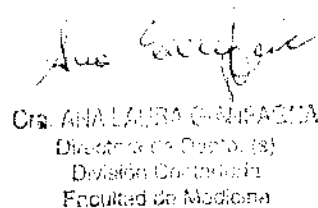 Ana
Cra. ANA LAURA
Directora de Depto. (s)
División Contaduría
Facultad de Medicina